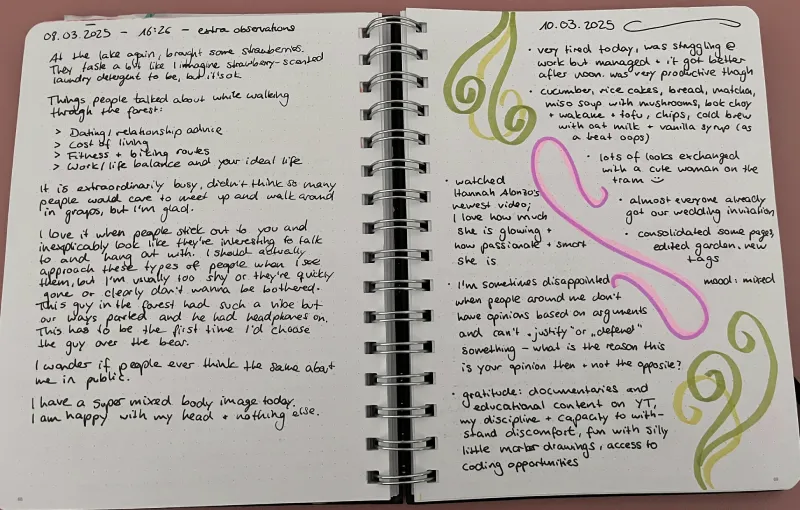 08.03.2025 - 16:26 - extra observations
At the lake again, brought some strawberries.
They taste a bit like I imagine strawberry-scented
laundry detergent to be, but it's ok
Things people talked about while walking
through the forest:
> Dating/relationship advice
> Cost of living
> Fitness + biking routes
> Work/life balance and your ideal life
It is extraordinarily busy, didn't think so many
people would care to meet up and walk around
in groups, but I'm glad.
I love it when people stick out to you and
inexplicably look like they're interesting to talk
to and hang out with. I should actually
approach these types of people when I see
them, but I'm usually too shy or they're quickly
gone or clearly don't wanna be bothered.
This guy in the forest had such a vibe but
our ways parted and he had headphones on.
This has to be the first time I'd choose
the guy over the bear.
I wonder if people ever think the same about
me in public.
I have a super mixed body image today.
I am happy with my head + nothing else.
10.03.2025
• very tired today, was struggling @
work but managed + it got better
after noon. was very productive though
• cucumber, rice cakes, bread, matcha,
miso soup with mushrooms, bok choy
+ wakame + tofu, chips, cold brew
with oat milk + vanilla syrup (as
a treat oops)
• lots of looks exchanged
with a cute woman on the
tram
• almost everyone already
got our wedding invitation
• consolidated some pages,
edited garden, new
tags
mood: mixed
• watched
Hannah Alonzo's
newest video;
I love how much
she is glowing +
how passionate + smart
she is
• I'm sometimes disappointed
when people around me don't
have opinions based on arguments
and can't „justify" or „defend"
something - what is the reason this
is your opinion then + not the opposite?
• gratitude: documentaries and
educational content on YT,
my discipline + capacity to with-
stand discomfort, fun with silly
little marker drawings, access to
coding opportunities